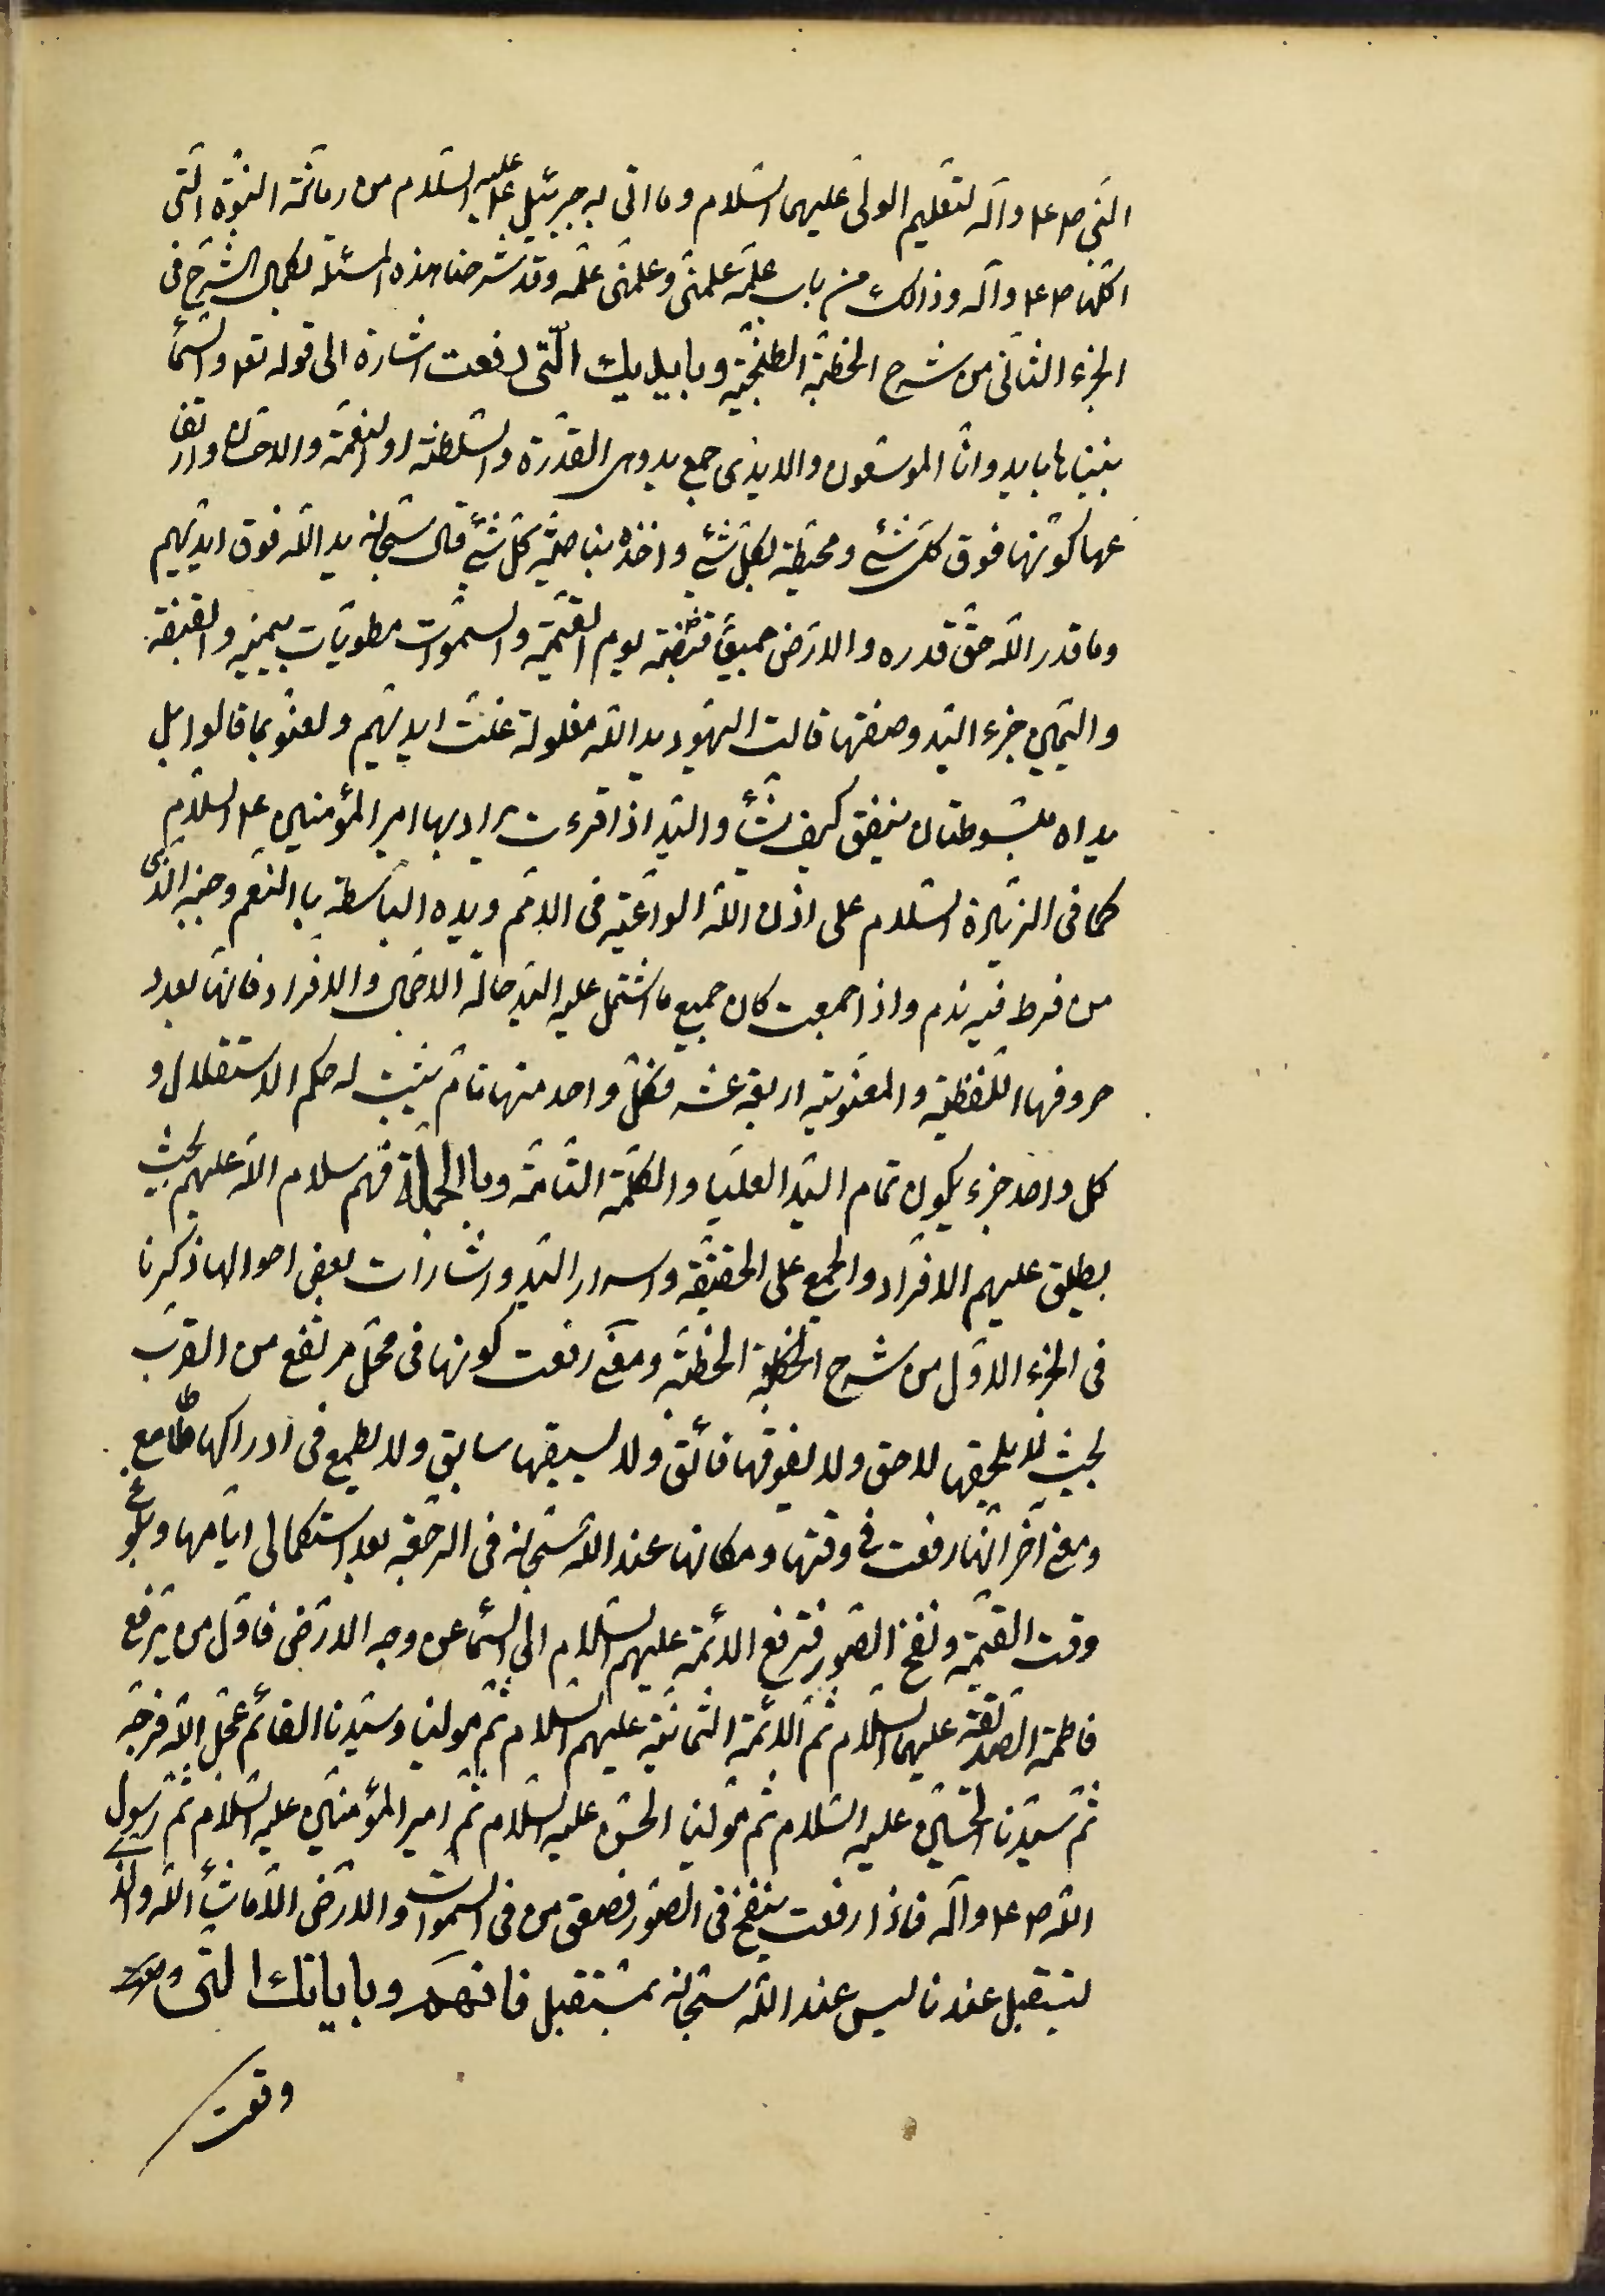 النبي ص ع وآله لتعليم الولى عليهما السلام وما اتى به جبرئيل عليه السلام من رمانة النبوة التى
اكلها ص ع وآله وذالك من باب علمته علمنى وعلمنى علمه وقد شرحنا هذه المسئلة بكمال الشرح فى
الجزء الثانى من شرح الخطبة الطتنجية وبايديك التى رفعت اشارة الى قوله تعم والسمآ
بنيناها بايد وانا لموسعون والايدى جمع يد وهى القدرة والسلطنة او النعمة والاحسان وارتفا
عها كونها فوق كل شئ ومحيطة بكل شئ واخذه بناصية كل شئ قال سبحانه يد الله فوق ايديهم
وما قدر الله حق قدره والارض جميعا قبضته يوم القيمة والسموات مطويات بيمينه والقبضة
واليمين جزء اليد وصفتها قالت اليهود يد الله مغلولة غلت ايديهم ولعنو بما قالوا بل
يداه مبسوطتان ينفق كيف يشآء واليد اذا قرءت يراد بها امير المؤمنين ع السلام
كما فى الزيارة السلام على اذن الله الواعية فى الامم ويده الباسطة با النعم وجنبه الذى
من فرط فيه ندم واذا جمعت كان جميع ما اشتمل عليه اليد حالة الاجمال والافراد فانها بعدد
حروفها اللفظية والمعنوية اربعة عشر فكل واحد منها تام يثبت له حكم الاستقلال و
كل واحد جزء يكون تمام اليد العليا والكلمة التامة وبا الجملة فهم سلام الله عليهم بحيث
يطلق عليهم الافراد والجمع على الحقيقة واسرار اليد واشارات بعض احوالها ذكرنا
فى الجزء الاول من شرح الخطبة ومعنى رفعت كونها فى محل مرتفع من القرب
بحيث لا يلحقها لاحق ولا يفوقها فائق ولا يسبقها سابق ولا يطمع فى ادراكها طامع
ومعنى آخر انها رفعت فى وقتها ومكانها عند الله سبحانه فى الرجعة بعد استكمال ايامها وبلوغ
وقت القيمة ونفخ الصور فترفع الائمة عليهم السلام الى السمآ عن وجه الارض فاول من يرفع
فاطمة الصديقة عليها السلام ثم الائمة الثمانية عليهم السلام ثم مولينا وسيدنا القائم عجل الله فرجه
ثم سيدنا الحسين عليه السلام ثم مولينا الحسن عليه السلام ثم امير المؤمنين عليه السلام ثم رسول
الله ص ع وآله فاذا رفعت ينفخ فى الصور فصعق من فى السموات والارض الا ما شآء الله والذى
يستقبل عندنا ليس عند الله سبحانه بمستقبل فافهم وباياتك التى
وقعت